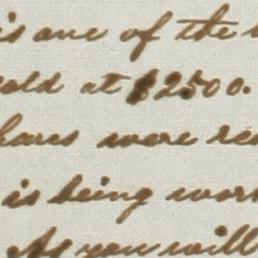 is one of the
sold at $2500.
hares were re
is being wor
As you will